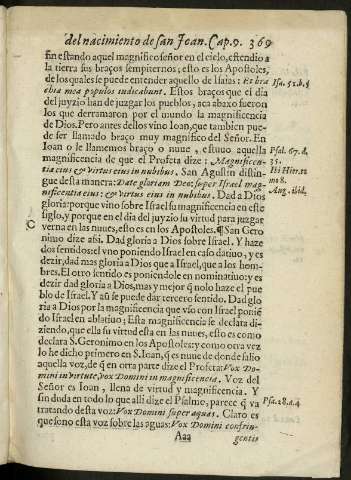 del nacimiento de san Joan. Cap. 9. 369
fin estando aquel magnifico señor en el cielo, estendio a
la tierra sus braços sempiternos; esto es los Apostoles,
de los quales se puede entender aquello de Isaias: Et bra
chia mea populos iudicabunt. Estos braços que el dia
del juyzio han de juzgar los pueblos, aca abaxo fueron
los que derramaron por el mundo la magnificencia
de Dios. Pero antes dellos vino Ioan, que tambien pue-
de ser llamado braço muy magnifico del Señor. En
Ioan o le llamemos braço o nuue, estuuo aquella
magnificencia de que el Profeta dize: Magnificen-
tia eius & virtus eius in nubibus. San Agustin distin-
gue desta manera: Date gloriam Deo: super Israel mag-
nificentia eius; & virtus eius in nubibus. Dad a Dios
gloria: porque vino sobre Israel su magnificencia en este
siglo, y porque en el dia del juyzio su virtud para juzgar
verna en las nuues, esto es en los Apostoles. ¶ San Gero
nimo dize assi. Dad gloria a Dios sobre Israel. Y haze
dos sentidos: el vno poniendo Israel en caso datiuo, y es
dezir, dad mas gloria a Dios que a Israel, que a los hom-
bres. El otro sentido es poniendole en nominatiuo: y es
dezir dad gloria a Dios, mas y mejor q̃ nolo haze el pue
blo de Israel. Y aũ se puede dar tercero sentido. Dad glo
ria a Dios por la magnificencia que vso con Israel poniẽ
do Israel en ablatiuo: Esta magnificencia se declara di-
ziendo, que ella su virtud esta en las nuues, esto es como
declara S. Geronimo en los Apostoles: y como otra vez
lo he dicho primero en S. Ioan, q̃ es nuue de donde salio
aquella voz, de q̃ en otra parte dize el Profeta: Vox Do-
mini in virtute, vox Domini in magnificencia. Voz del
Señor es Ioan, llena de virtud y magnificencia. Y
sin duda en todo lo que alli dize el Psalmo, parece q̃ va
tratando desta voz: Vox Domini super aquas. Claro es
que sono esta voz sobre las aguas: Vox Domini confrin-
Aaa gentis
Isa. 51. b. 5
Psal. 67. d.
35.
Aug. ibid.
Psa. 28. a. 4